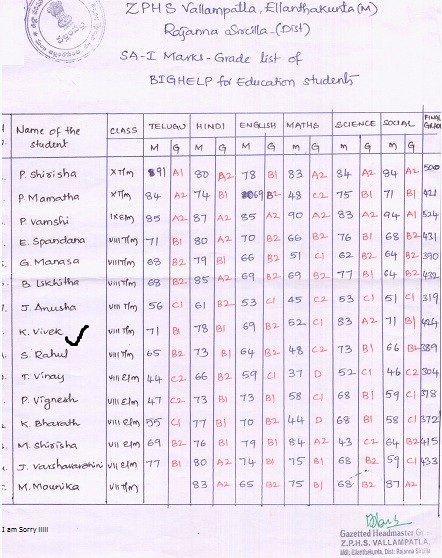 Z P H S Vallampatla, Ellanthakunta(M)
Rajanna Sircilla-(Dist)
SA-I Marks-Grade list of
BIGHELP for Education students
Name of the student CLASS TELUGU HINDI ENGLISH MATHS SCIENCE SOCIAL FINAL GRADE
M G M G M G M G M G M G
P. Shirisha X T/m 91 A1 80 A2 78 B1 83 A2 84 A2 84 A2 500
P. Mamatha X T/m 84 A2 74 B1 69 B2 48 C2 75 B1 71 B1 421
P. Vamshi IX E/m 85 A2 87 A2 85 A2 90 A2 83 A2 94 A1 524
E. Spandana VIII T/m 71 B1 80 A2 70 B2 66 B2 76 B1 68 B2 431
G. Manasa VIII T/m 68 B2 79 B1 66 B2 51 C1 62 B2 64 B2 390
B. Likhitha VIII T/m 68 B2 85 A2 69 B2 69 B2 77 B1 64 B2 432
J. Anusha VIII T/m 56 C1 61 B2 53 C1 45 C2 53 C1 51 C1 319
K. Vivek VIII T/m 71 B1 78 B1 69 B2 52 C1 83 A2 71 B1 424
S. Rahul VIII T/m 65 B2 73 B1 64 B2 48 C2 73 B1 66 B2 389
T. Vinay VIII E/m 44 C2 66 B2 59 C1 37 D 52 C1 46 C2 304
P. Vignesh VII E/m 47 C2 73 B1 73 B1 58 C1 68 B1 59 C1 378
K. Bharath VII E/m 55 C1 77 B1 70 B2 44 D 68 B1 58 C1 372
M. Shirisha VII E/m 69 B2 76 B1 79 B1 84 A2 43 C2 64 B2 415
J. Varshavarshini VII E/m 77 B1 80 A2 74 B1 75 B1 68 B2 59 C1 433
M. Mounika VII T/m 83 A2 65 B2 75 B1 68 B2 87 A2
I am Sorry !!!!!
Gazetted Headmaster
Z.P.H.S. VALLAMPATLA,
Mdl: Ellanthakunta, Dist: Rajanna Sircilla